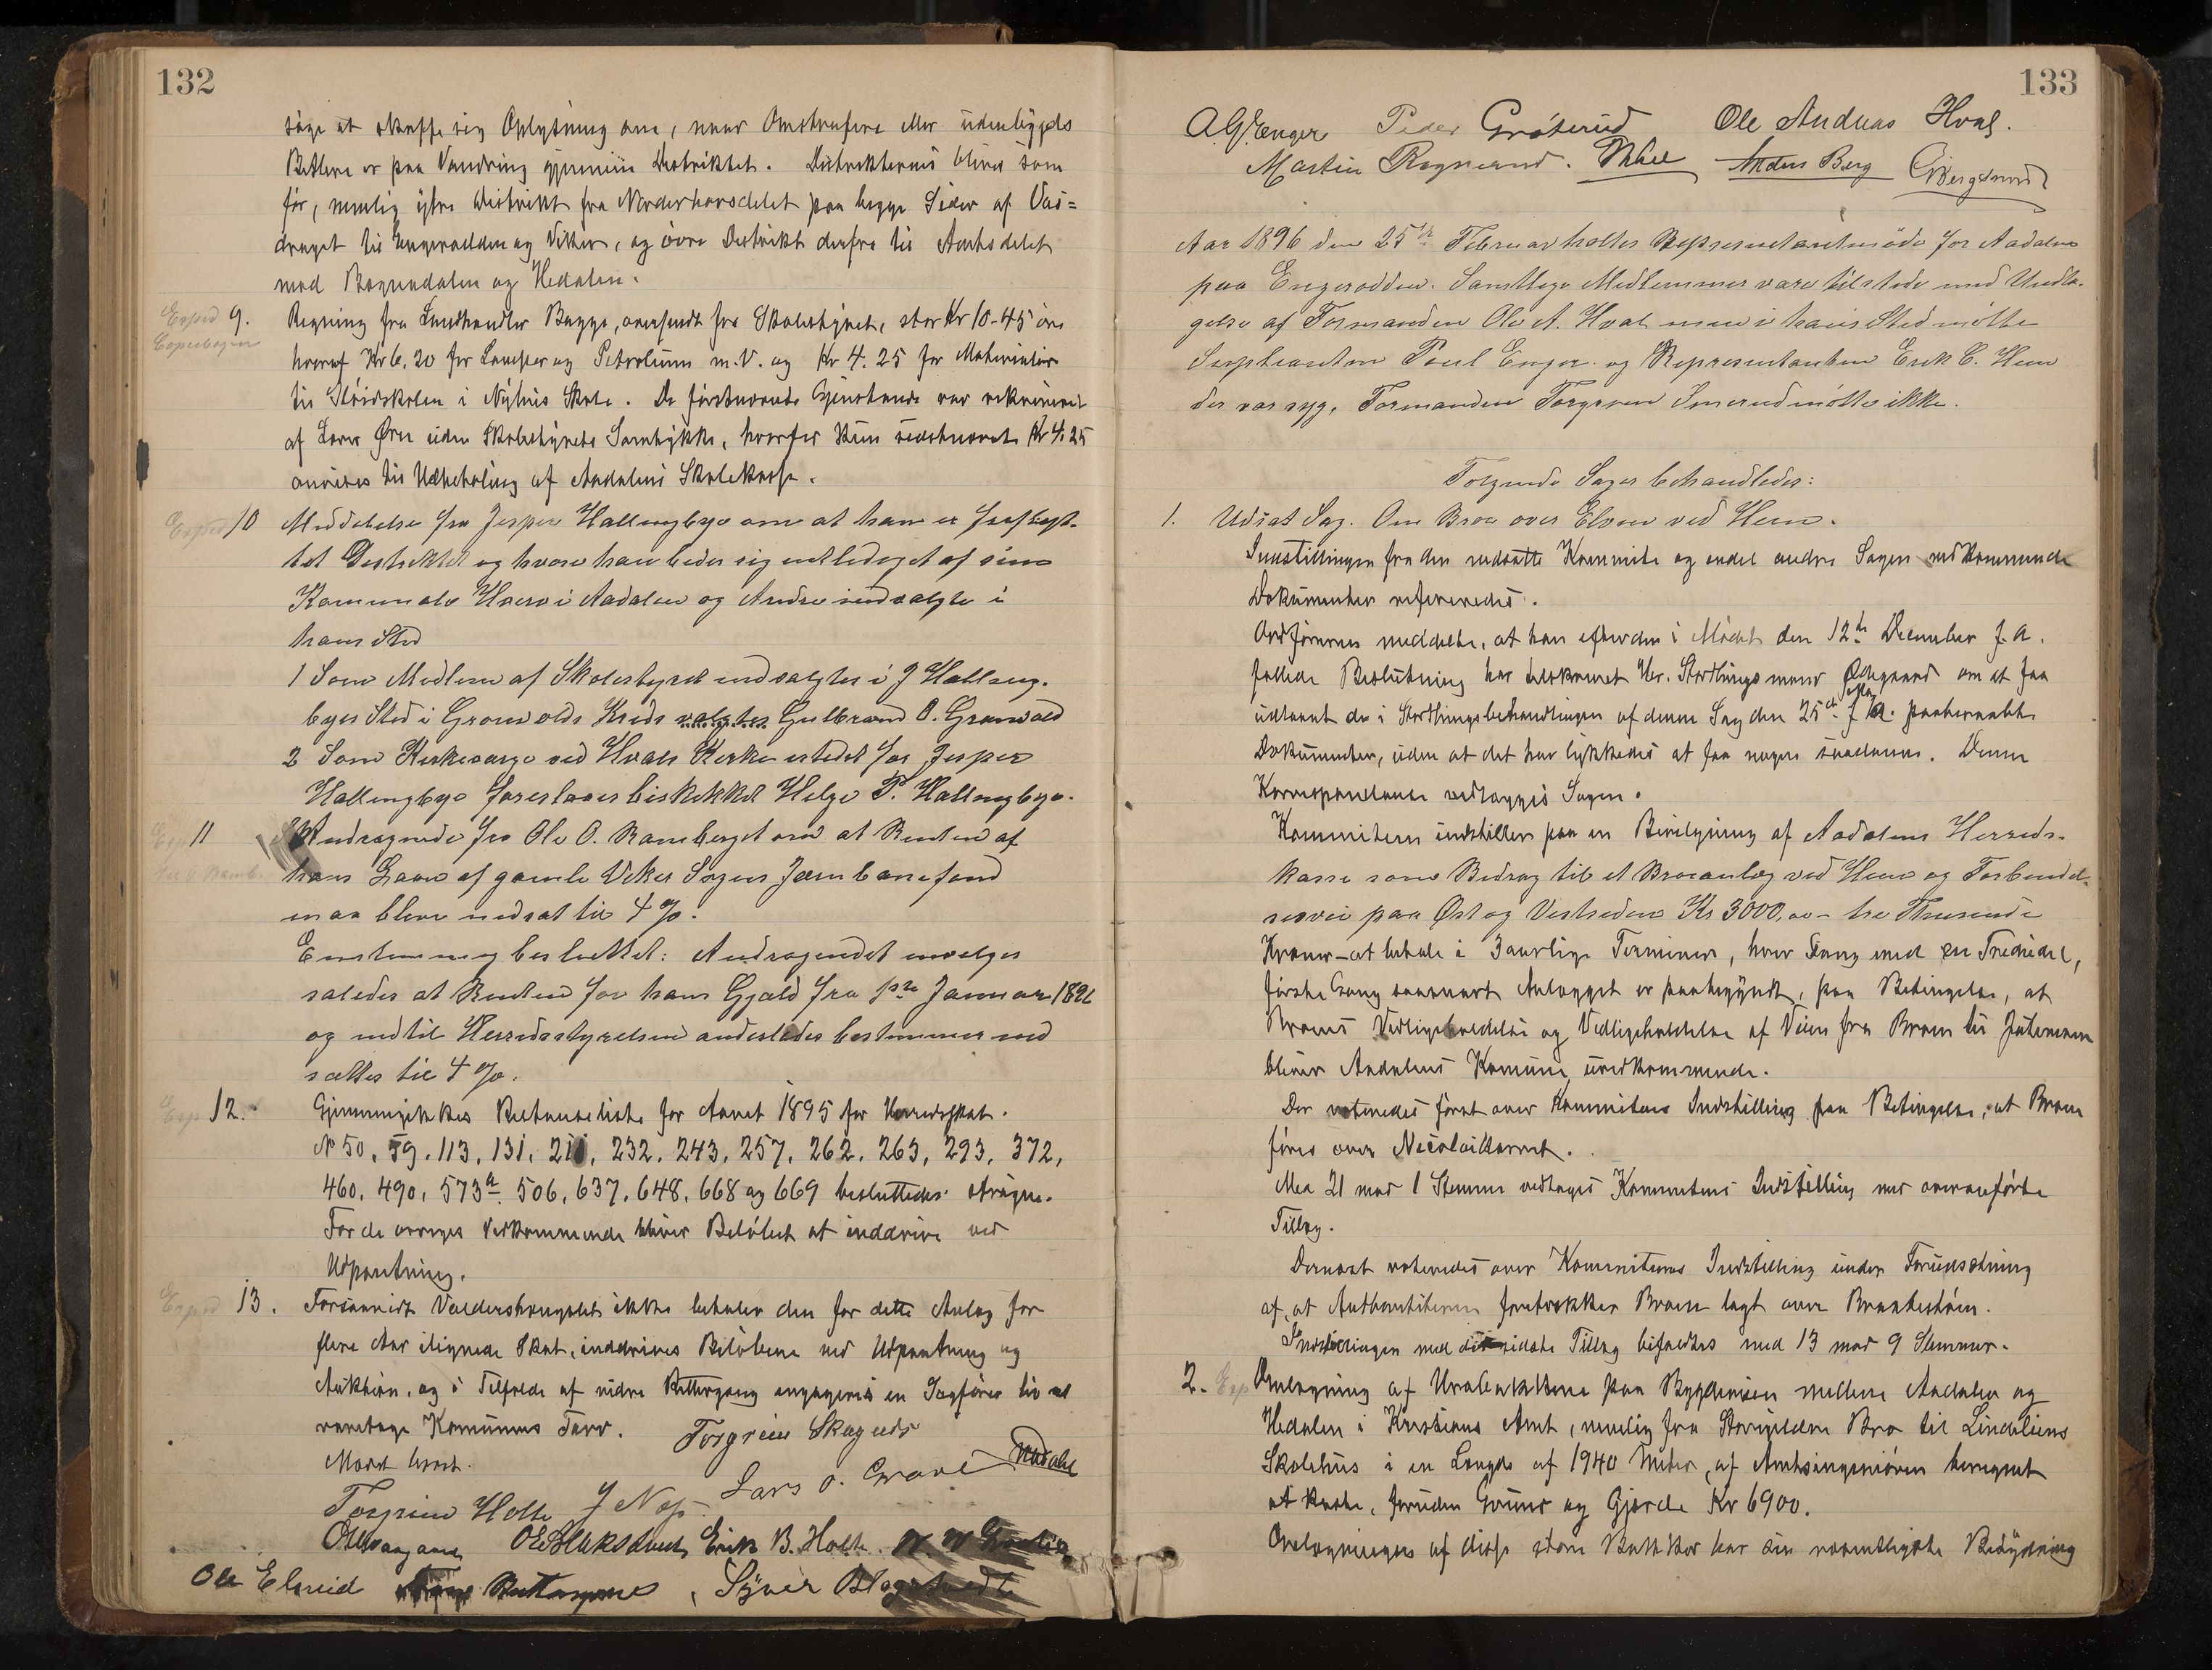 132
søge at skaffe sig Oplysning om, naar Omstreifere eller udenbygds
Betlere er paa Vandring gjennem Distriktet. Distrikterne bliver som
før, nemlig ytre Distrikt fra Norderhovsdelet paa begge Sider af Vas=
draget til Engerodden og Viker, og øvre Distrikt derfra til Amtsdelet
med Vassendalen og Hedalen.
Exped 9. Regning fra Landhandler Bagge, oversendt fra Skolestyret, stor Kr 10-45 øre
hvoraf Kr 6.20 for Lamper og Petroleum m.V. og Kr 4.25 for Materialer
til Sløidskolen i Nyhus Skole. De førstnævnte Gjenstande var rekvireret
af Lærer Øren uden Skolestyrets Samtykke, hvorfor kun sidstnævnte Kr 4.25
anvises til Udbetaling af Aadalens Skolekasse.
Exped 10 Meddelelse fra Jesper Hallingbye om at han er fraflyt-
tet Distriktet og hvori han beder sig entlediget af sine
Komunale Hverv i Aadalen og Andre indvalgte i
hans Sted
1 Som Medlem af Skolestyret indvalgtes i J Halling-
byes Sted i Grønvolds Kreds valgtes Gulbrand O. Grønvold
2 Som Kirkeværge ved Hvals Kirke istedet for Jesper
Hallingbye foreslaaes beskikket Helge P. Hallingbye.
11 Andragende fra Ole O. Ramberget om at Renten af
hans Laan af gamle Viker Sogns Jernbanefond
maa blive nedsat til 4 %.
Enstemmig besluttet: Andragendet innvilges
saledes at Renten for hans Gjæld fra 1ste Januar 1896
og indtil Herredsstyrelsen anderledes bestemmer ned
sættes til 4 %.
Exp 12. Gjennemgikkes Restanceliste for Aaret 1895 for Herredsskat.
No 50, 59, 113, 131, 210, 232, 243, 257, 262, 263, 293, 372,
460, 490, 573a, 506, 637, 648, 668 og 669 besluttedes strøgne.
For de øvriges Vedkommende bliver Beløbet at inddrive ved
Udpantning.
Exped 13. Forsaavidt Valdershougselet ikke betaler den for dette Anlæg for
flere Aar ilignede Skat, inddrives Beløbene ved Udpantning og
Auktion, og i Tilfælde af vidre Rettergang engageres en Sagfører til at
varetage Komunens Tarv.
Mødet hævet.
Torgrim Skagnæs
Lars O.
Torgrim Holte J Næs
Erik B. Holte
Ole Elsrud
133
A.G. Enger Peder Grøterud Ole Andreas Hval.
Martin Rognerud. Anders Berg
Aar 1896 den 25de Februar holtes Representantmøde for Aadalen
paa Engerodden. Samtlige Medlemmer vare tilstede med Undta-
gelse af Formanden Ole A. Hval men i hans Sted møtte
Suppleanten Poul Enger og Representanten Erik C. Heen
der var syg, Formanden Torgrim Smerud møtte ikke.
Følgende Sager behandledes:
1. Udsat Sag. Om Bro over Elven ved Heen.
Innstillingen fra den nedsatte Kommite og endel andre Sagen vedkommende
Dokumenter refereredes.
Ordføreren meddelte, at han efter den i Mødet den 12te December f.A.
fattede Beslutning har tilskrevet Hr. Storthingsmand Ødegaard om at faa
udlaant de i Storthingsbehandlingen af denne Sag den 25de Mai f A. paaberaabte
Dokumenter, uden at det har lykkedes at faa nogen saadanne. Denne
Korrespondance vedlægges Sagen.
Kommiteen indstiller paa en Bevilgning af Aadalens Herreds-
kasse som Bidrag til et Broanlæg ved Heen og Forbindel-
sesvei paa Øst og Vestsiden Kr 3000,00 - tre Tusinde
Kroner - at betale i 3 aarlige Terminer, hver Gang med en Trediedel,
første Gang saasnart Anlægget er paabegyndt, paa Betingelse, at
Broens Vedligeholdelse og Vedligeholdelse af Veien fra Broen til
bliver Aadalens Komune uvedkommende.
Der voteredes først over Kommiteens Indstilling paa Betingelse, at Broen
føres over Nicolaikarret.
Med 21 mod 1 Stemme vedtoges Kommiteens Indstilling med ovenanførte
Tillæg.
Dernæst voteredes over Kommiteens Indstilling under Forudsætning
af, at Authoriteterne foretrækker Broen lagt over Brækkestøen.
Innstillingen med det sidste Tillæg bifaldtes med 13 mod 9 Stemmer.
2. Exp Omlægning af Urabakkene paa Bygdeveien mellem Aadalen og
Hedalen i Kristians Amt, nemlig fra Storgilderne Bro til Lindeliens
Skolehus i en Længde af 1940 Meter, af Amtsingeniøren beregnet
at koste, foruden Grund og Gjærde Kr 6900.
Omlægningen af disse store Bakker har sin væsentligste Betydning